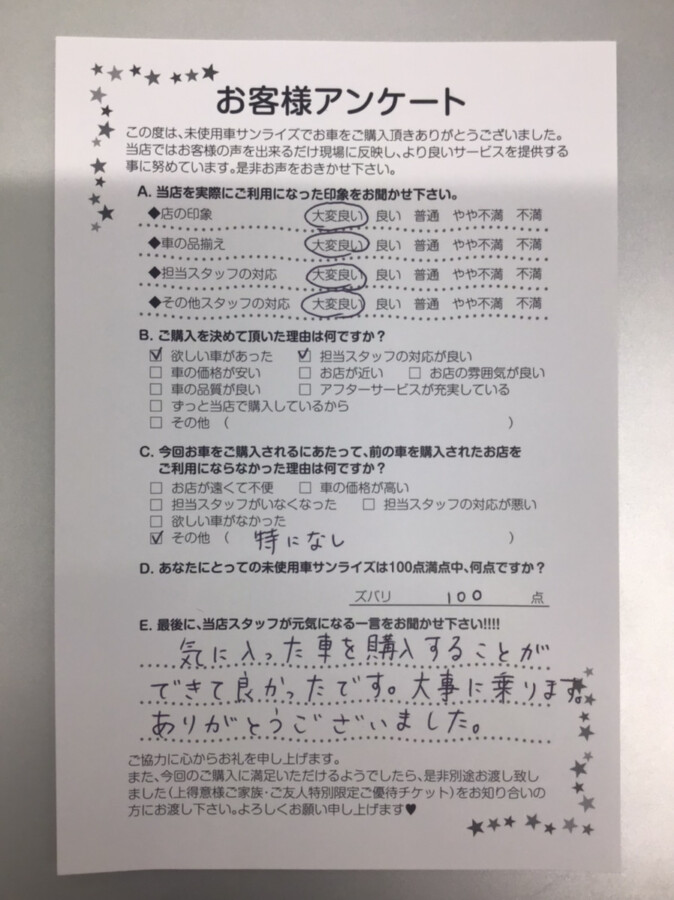 お客様アンケート
この度は、未使用車サンライズでお車をご購入頂きありがとうございました。
当店ではお客様の声を出来るだけ現場に反映し、より良いサービスを提供する
事に努めています。是非お声をおきかせ下さい。
A. 当店を実際にご利用になった印象をお聞かせ下さい。
◆店の印象 大変良い 良い 普通 やや不満 不満
◆車の品揃え 大変良い 良い 普通 やや不満 不満
◆担当スタッフの対応 大変良い 良い 普通 やや不満 不満
◆その他スタッフの対応 大変良い 良い 普通 やや不満 不満
B. ご購入を決めて頂いた理由は何ですか?
☑ 欲しい車があった ☑ 担当スタッフの対応が良い
□ 車の価格が安い □ お店が近い □ お店の雰囲気が良い
□ 車の品質が良い □ アフターサービスが充実している
□ ずっと当店で購入しているから
□ その他 ( )
C. 今回お車をご購入されるにあたって、前の車を購入されたお店を
ご利用にならなかった理由は何ですか?
□ お店が遠くて不便 □ 車の価格が高い
□ 担当スタッフがいなくなった □ 担当スタッフの対応が悪い
□ 欲しい車がなかった
☑ その他 ( 特になし )
D. あなたにとっての未使用車サンライズは100点満点中、何点ですか?
ズバリ 100 点
E. 最後に、当店スタッフが元気になる一言をお聞かせ下さい!!!!
気に入った車を購入することが
できて良かったです。大事に乗ります。
ありがとうございました。
ご協力に心からお礼を申し上げます。
また、今回のご購入に満足いただけるようでしたら、是非別途お渡し致し
ました(上得意様ご家族・ご友人特別限定ご優待チケット)をお知り合いの
方にお渡し下さい。よろしくお願い申し上げます♥